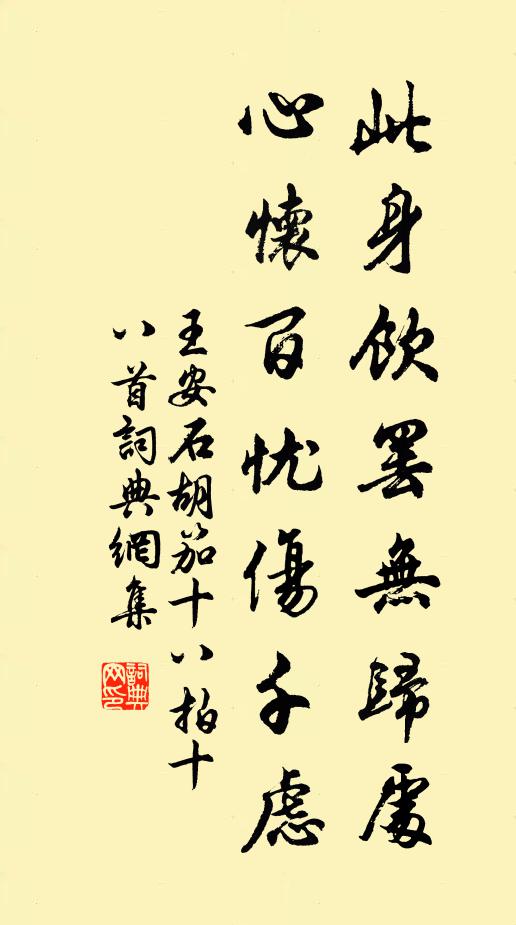 此身飲罷無歸處
心懷百忧傷千慮
王安石胡笳十八拍十
八首詞典網集
詞典網印